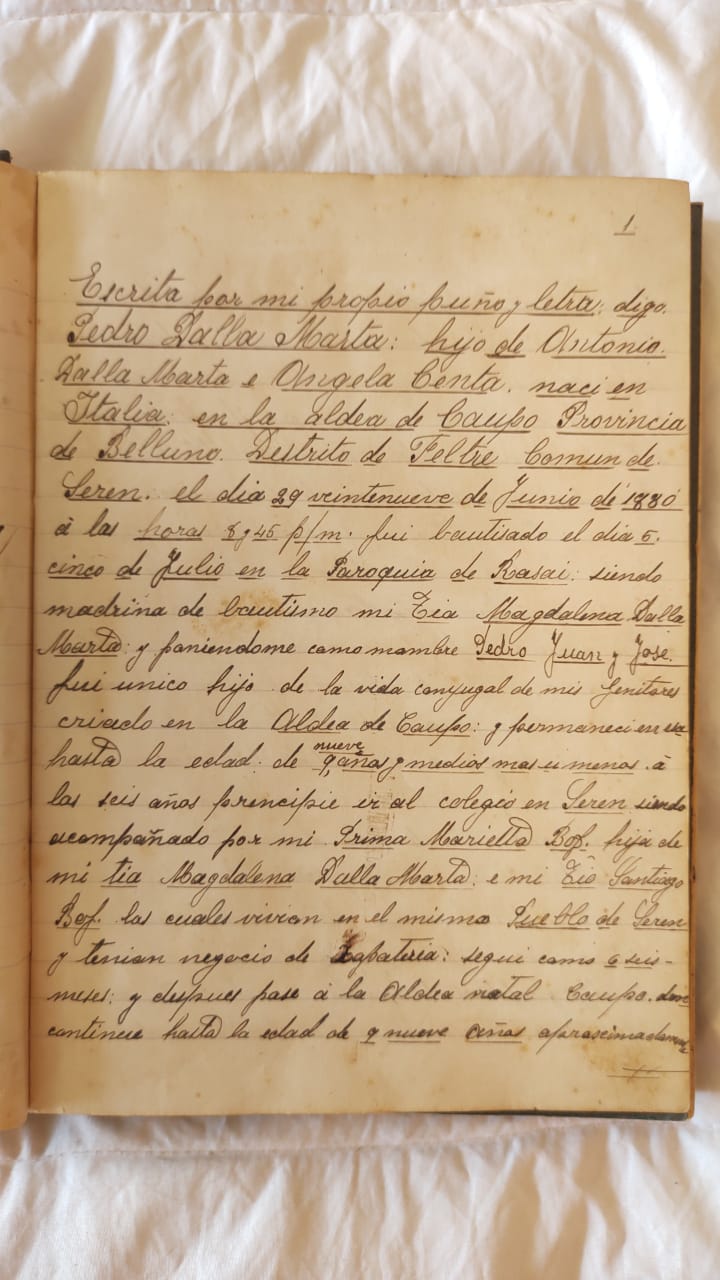 1.
Escrita por mi propio puño y letra: digo.
Pedro Dalla Marta: hijo de Antonio.
Dalla Marta e Angela Centa. naci en
Italia: en la aldea de Caupo Provincia
de Belluno. Destrito de Feltre Comun de.
Seren. el dia 29 veintenueve de Junio de 1880
à las horas 8 y 45 p/m. fui bautisado el dia 5.
cinco de Julio en la Paroquia de Rasai: siendo
madrina de bautismo mi Tia Magdalena Dalla
Marta: y poniendome como mombre Pedro Juan y José.
fui unico hijo de la vida conyugal de mis Genitores
criado en la Aldea de Caupo: y permaneci en esa
nueve
hasta la edad. de 9, años y medios mas u menos. à
los seis años principie ir al colegio en Seren siendo
acompañado por mi Prima Marietta Bof. hija de
mi tia Magdalena Dalla Marta; e mi Tio Santiago
Bof. los cuales vivian en el mismo Pueblo de Seren
y tenian negocio de : segui como 6 seis-
meses; y despues pase à la Aldea natal Caupo. donde
continue hasta la edad de 9 nueve años aprossimadamente